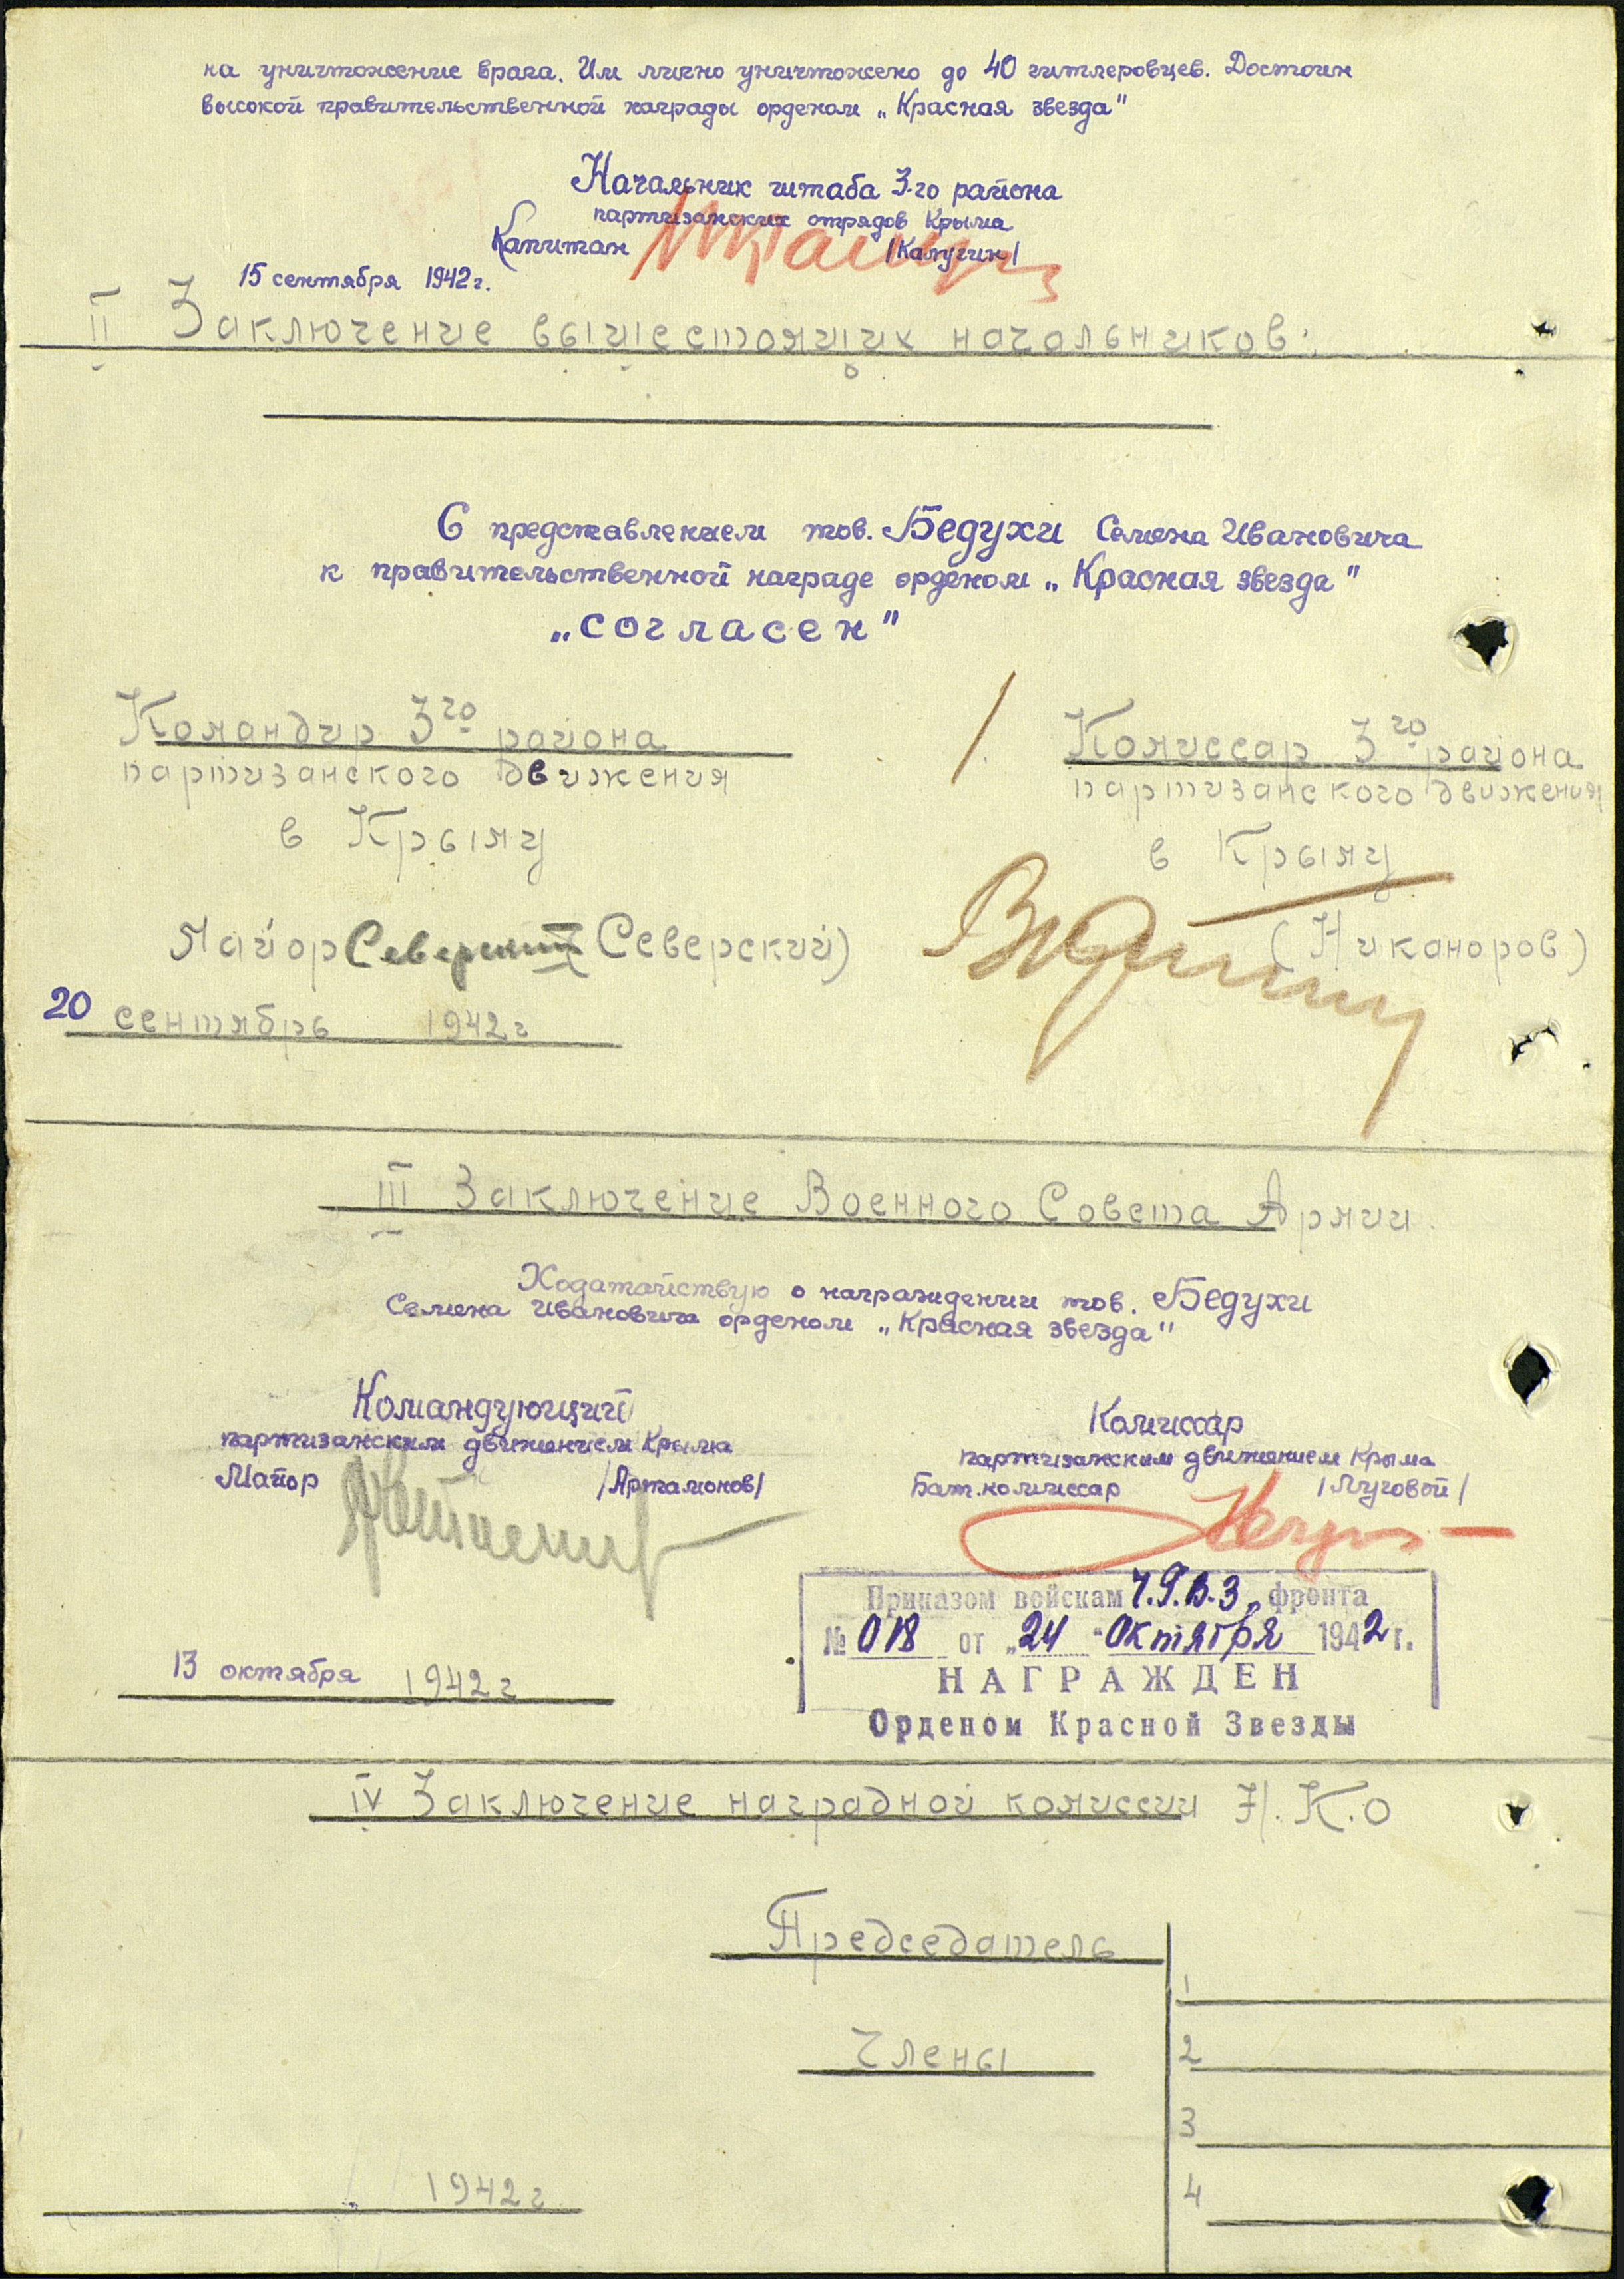 на уничтожение врага. Им лично уничтожено до 40 гитлеровцев. Достоин
высокой правительственной награды орденом „Красная звезда"
Начальник штаба 3-го района
партизанских отрядов Крыма
Капитан /Калугин/
15 сентября 1942 г.
II Заключение вышестоящих начальников:
С представлением тов. Бедухи Семена Ивановича
к правительственной награде орденом „Красная звезда"
„согласен"
Командир 3го района
партизанского движения
в Крыму
Майор Северский (Северский)
20 сентябрь 1942 г
Комиссар 3го района
партизанского движения
в Крыму
(Никаноров)
III Заключение Военного Совета Армии.
Ходатайствую о награждении тов. Бедухи
Семена Ивановича орденом „Красная звезда"
Командующий
партизанским движением Крыма
Майор /Артамонов/
Комиссар
партизанским движением Крыма
Бат. комиссар /Луговой/
13 октября 1942 г
Приказом войскам Ч.Г.В.З. фронта
№ 018 от „24" Октября 1942 г.
НАГРАЖДЕН
Орденом Красной Звезды
IV Заключение наградной комиссии Н.К.О
Председатель
Члены
1
2
3
4
1942 г